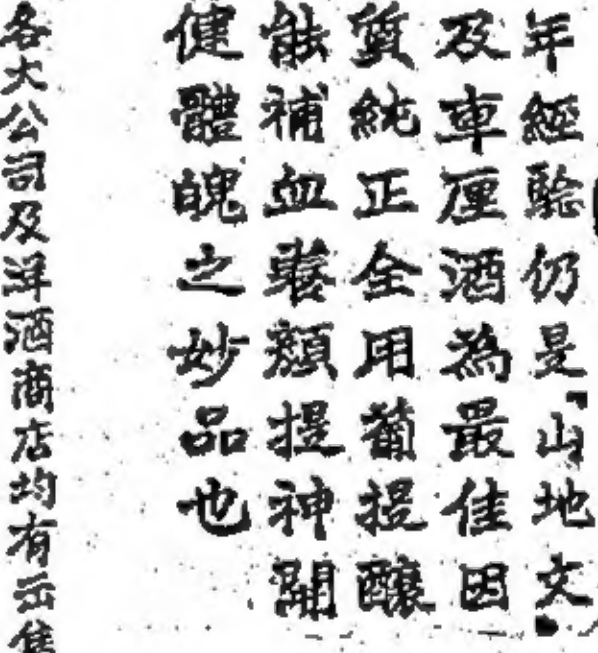 年經驗仍是「山地文」
及車厘酒為最佳因
質純正全用葡提釀
能補血養顏提神開
健體魄之妙品也
各大公司及洋酒商店均有出售